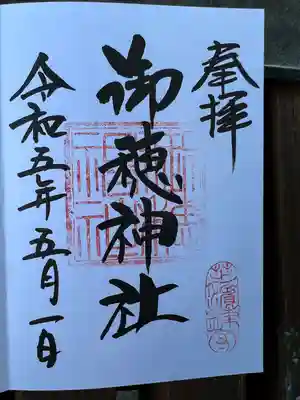 奉拝
御穂神社
令和五年五月一日